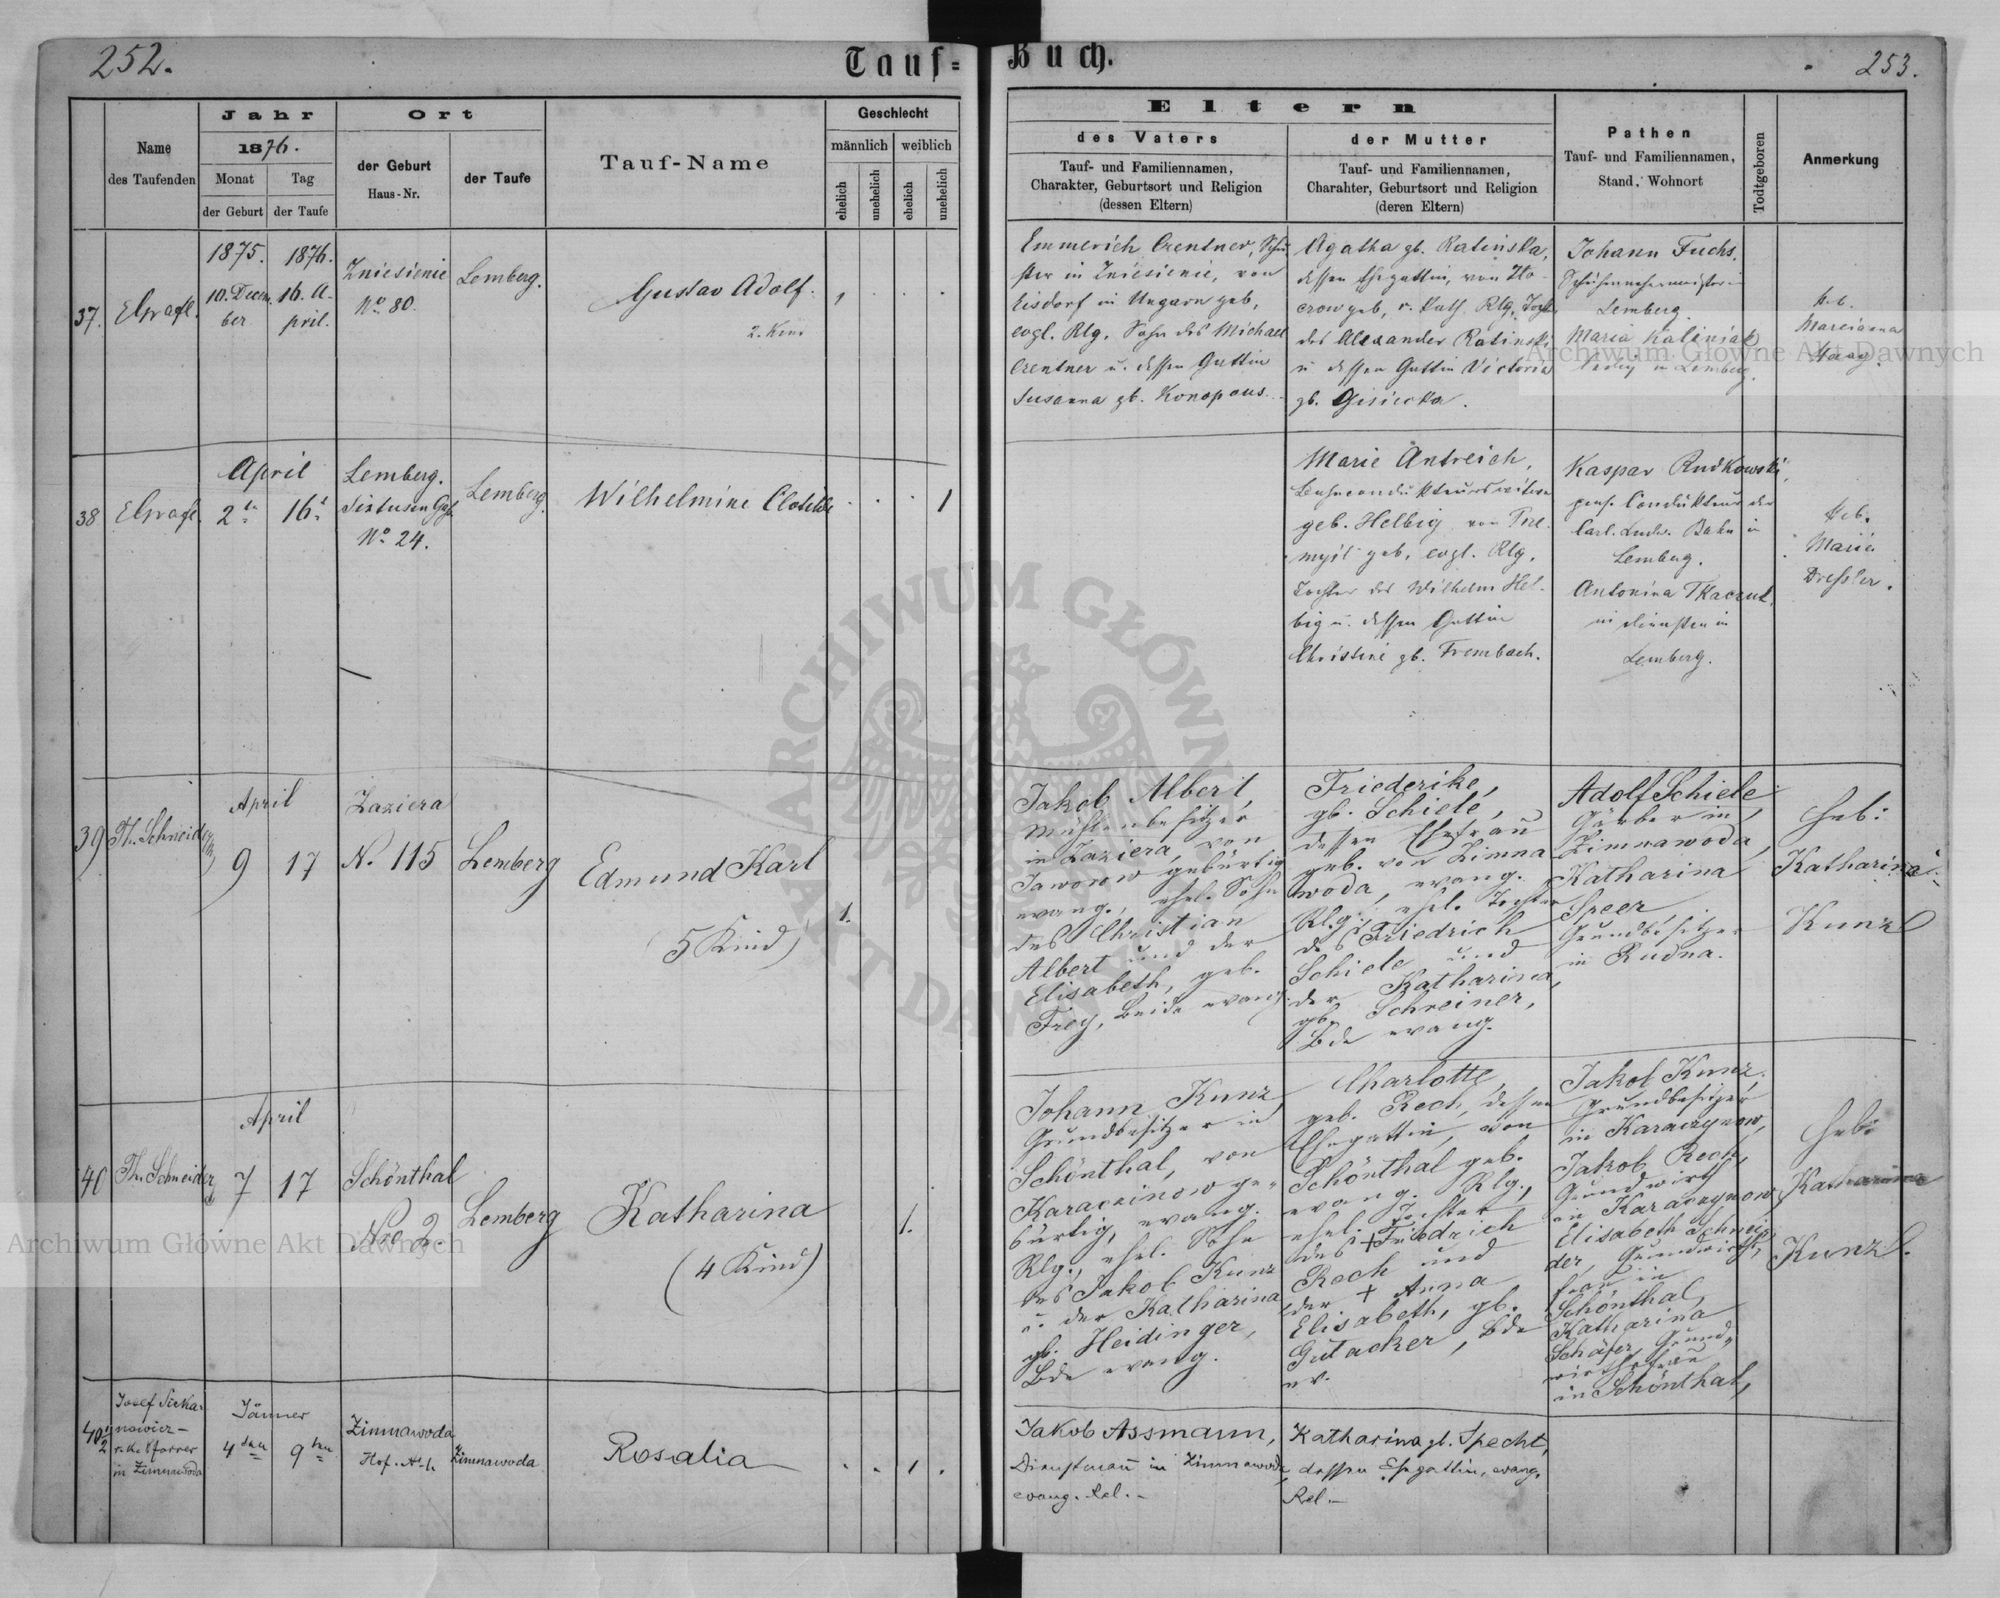 252.
Tauf-Buch.
253.
Name
des Taufenden
Jahr
1876.
Monat
der Geburt
Tag
der Taufe
Ort
der Geburt
Haus-Nr.
der Taufe
Tauf-Name
Geschlecht
männlich
weiblich
ehelich
unehelich
ehelich
unehelich
Eltern
des Vaters
Tauf- und Familiennamen,
Charakter, Geburtsort und Religion
(dessen Eltern)
der Mutter
Tauf- und Familiennamen,
Charahter, Geburtsort und Religion
(deren Eltern)
Pathen
Tauf- und Familiennamen,
Stand, Wohnort
Todtgeboren
Anmerkung
37.
1875.
10. Decem
ber
1876.
16. A-
pril.
Zniesienie
No 80.
Lemberg.
Gustav Adolf.
2. Kind
1
Emmerich Crentner, Schu
ster in Zniesienie, von
Eisdorf in Ungarn geb,
evgl. Rlg. Sohn des Michael
Crentner u. dessen Gattin
Susanna gb. Konopaus
Agatha gb. Ratinska,
dessen Ehegattin, von
crow geb, r. kath. Rlg, Tocht
des Alexander Ratinski
u dessen Gattin Victoria
gb. Gisiecka.
Johann Fuchs,
Schuhmachermeister in
Lemberg.
Maria Kaliniak
ledig in Lemberg.
Heb.
Marcianna
Haag.
38
April
2te
16t
Lemberg.
Sixtusen Gasse
No 24.
Lemberg.
Wilhelmine Clotilde
1
Marie Antreich,
Bahncondukteurswitwe
geb. Helbig von
myśl geb, evgl. Rlg,
Tochter des Wilhelm Hel-
big u. dessen Gattin
Christine gb. Frembach.
Kaspar Rudkowski,
pens. Condukteur der
Carl. Ludw. Bahn in
Lemberg.
Antonina Tkaczuk,
in Diensten in
Lemberg.
Heb.
Marie
Dressler.
39
Th. Schneider
April
9
17
Laziera
N. 115
Lemberg
Edmund Karl
(5 Kind)
1.
Jakob Albert,
Mühlenbesitzer
in Laziera, von
Jaworow gebürtig
evang., ehel. Sohn
des Christian
Albert und der
Elisabeth, geb.
Frey, beide evang.
Friederike,
gb. Schiele,
dessen Ehefrau
geb. von Zimna
woda, evang.
Rlg., ehel. Tochter
des Friedrich
Schiele und
der Katharina,
gb. Schreiner,
Bde evang.
Adolf Schiele
Gärber in
Zimnawoda,
Katharina
Speer
Grundbesitzer
in Rudna.
Heb:
Katharina
Kunz
40
Th. Schneider
April
7
17
Schönthal
Nro 2.
Lemberg
Katharina
(4 Kind)
1.
Johann Kunz,
Grundbesitzer in
Schönthal, von
Karaczinow ge-
bürtig, evang.
Rlg., ehel. Sohn
des Jakob Kunz
u. der Katharina
gb. Heidinger,
Bde evang.
Charlotte,
geb. Rech, dessen
Ehegattin, von
Schönthal geb.
evang. Rlg.,
ehel. Tochter
des + Friedrich
Rech und
der + Anna
Elisabeth, gb.
Gutacker, Bde
ev.
Jakob Kunz,
Grundbesitzer
in Karaczynow,
Jakob Rech,
Grundwirth
in Karaczynow,
Elisabeth Schnei-
der, Grundwirths-
frau in
Schönthal,
Katharina
Schäfer, Grund-
wirthsfrau
in Schönthal,
Heb:
Katharina
Kunz.
40 1/2
nowicz-
r. k. Pfarrer
in Zimnawoda
Jänner
4ten
9ten
Zimnawoda
Zimnawoda
Rosalia
1
Jakob Assmann,
Dienstmann in Zimnawoda,
evang. Rel.-
Katharina gb. Specht,
dessen Ehegattin, evang.
Rel.-
ARCHIWUM GŁÓWNE AKT DAWNYCH
Archiwum Główne Akt Dawnych
Archiwum Główne Akt Dawnych